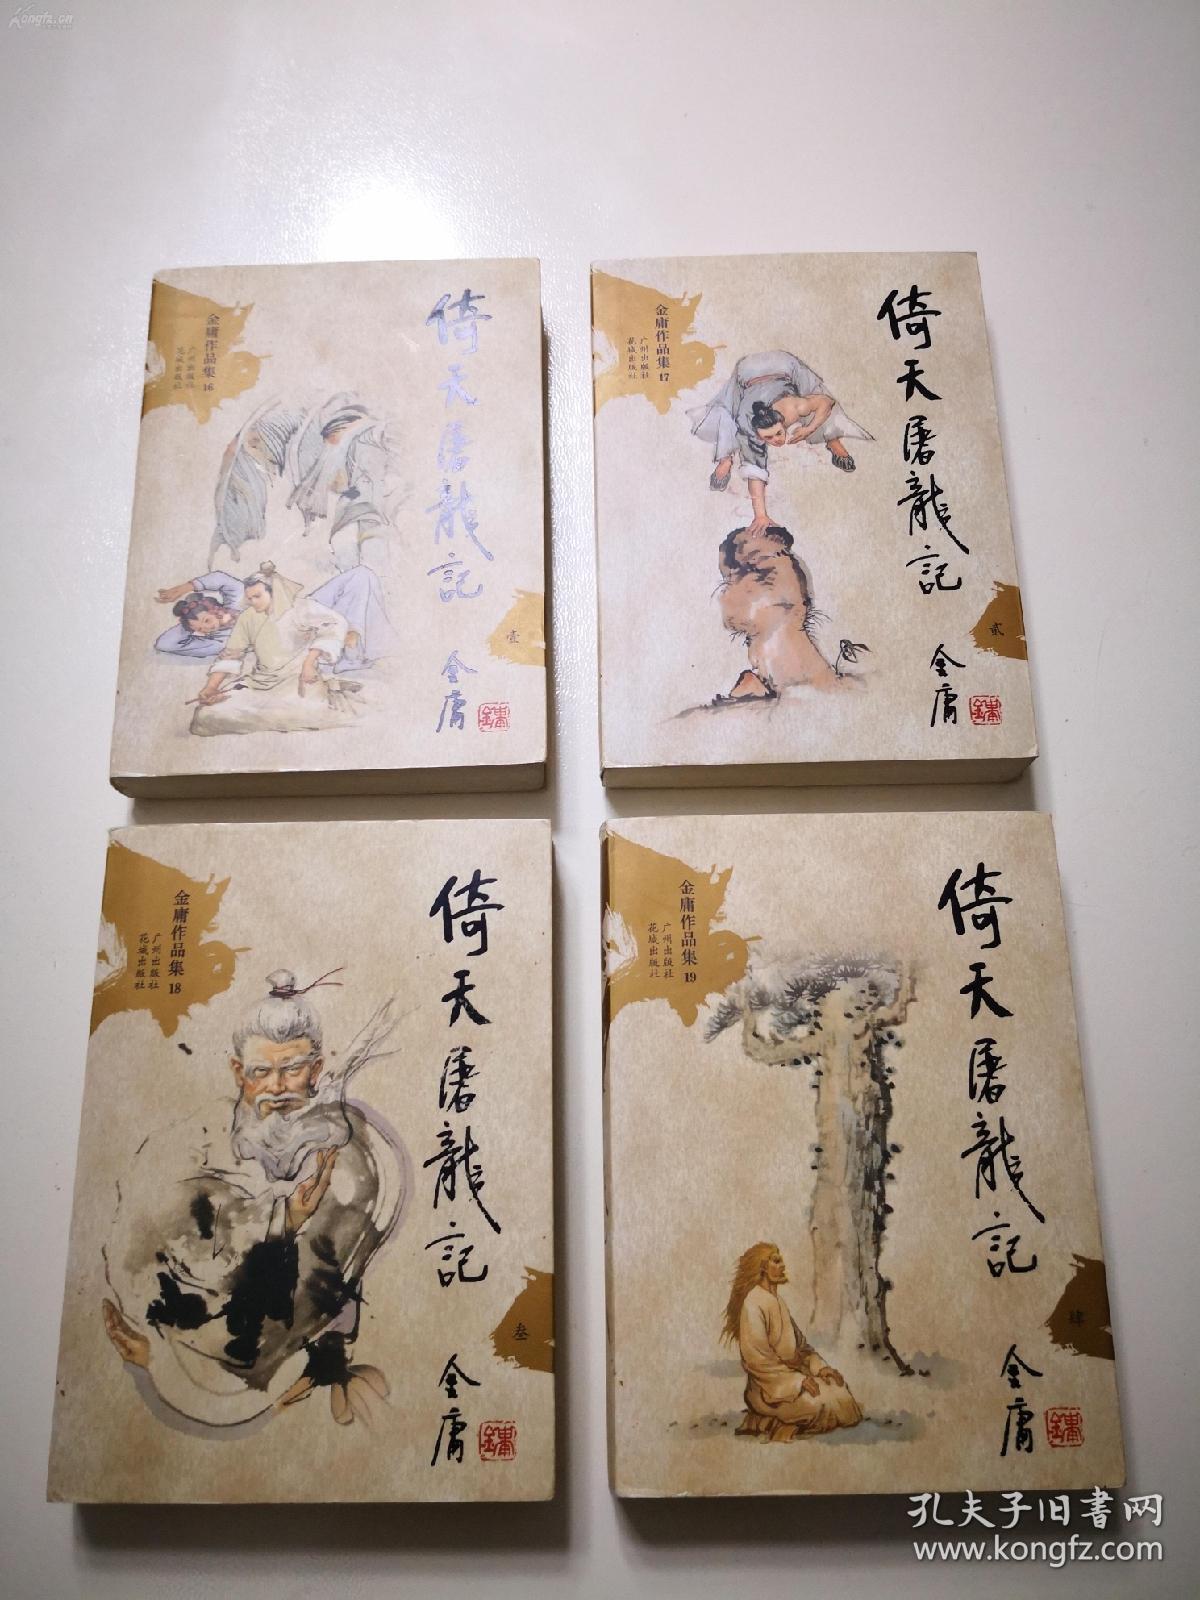 Kongfz.cn
金庸作品集16
广州出版社
花城出版社
倚天屠龍記
金庸
壹
金庸作品集17
广州出版社
花城出版社
倚天屠龍記
金庸
贰
金庸作品集18
广州出版社
花城出版社
倚天屠龍記
金庸
叁
金庸作品集19
广州出版社
花城出版社
倚天屠龍記
金庸
肆
孔夫子旧书网
www.kongfz.com